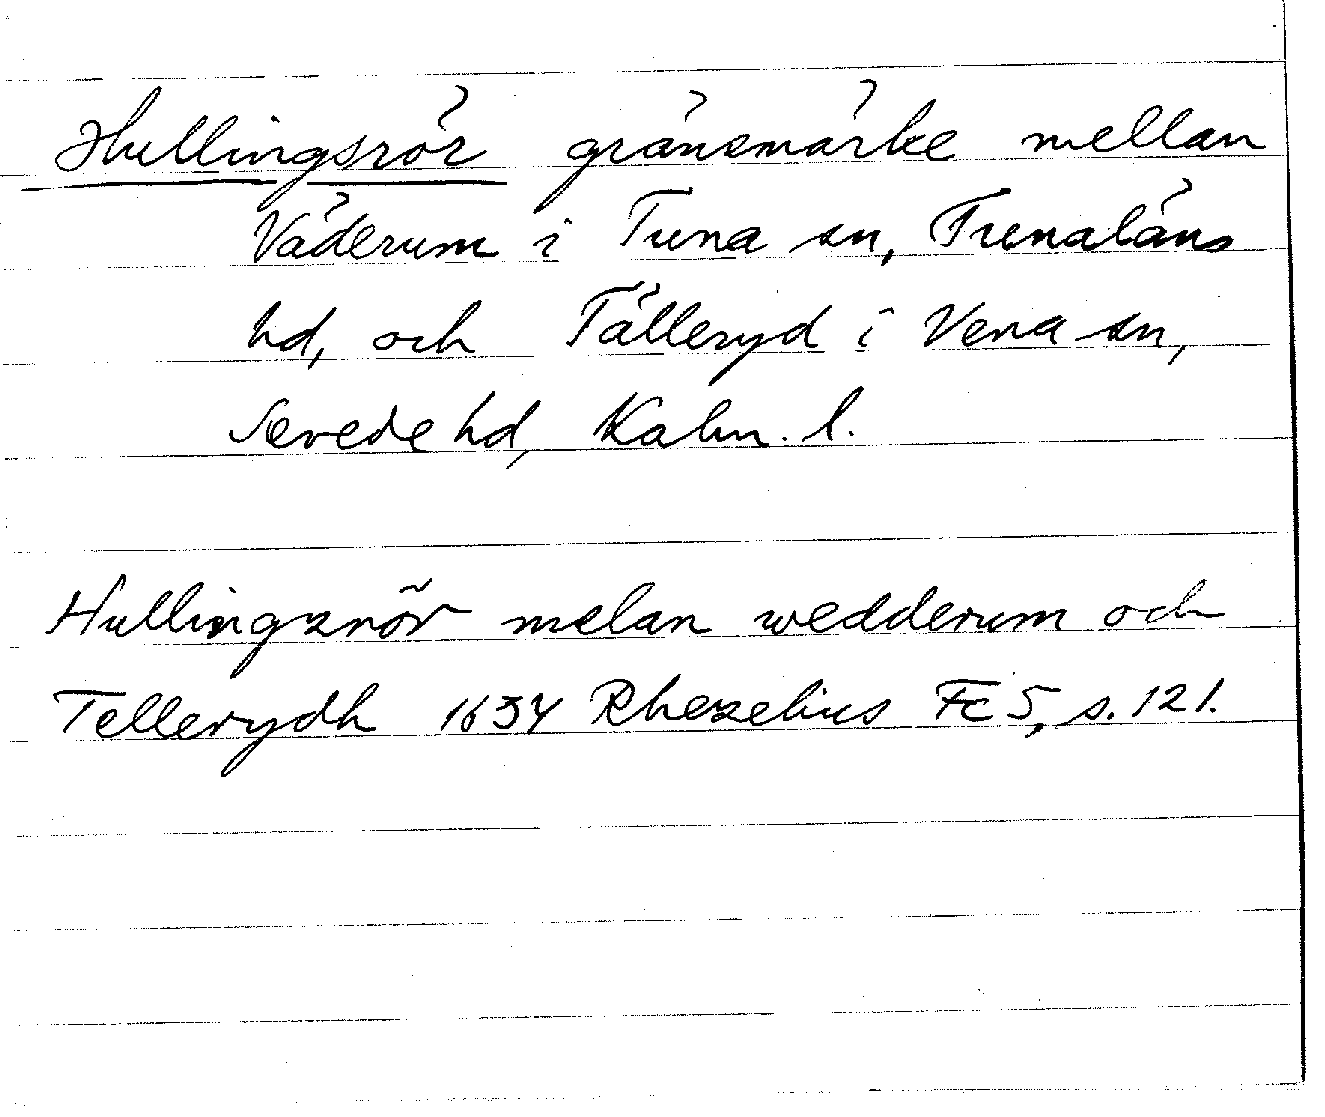 Hullingsrör gränsmärke mellan
Väderum i Tuna sn, Tunaläns
hd, och Tälleryd i Vena sn,
Sevede hd, Kalm. l.
Hullingzrör melan wedderum och
Tellerydh 1634 Rhezelius Fc 5, s. 121.